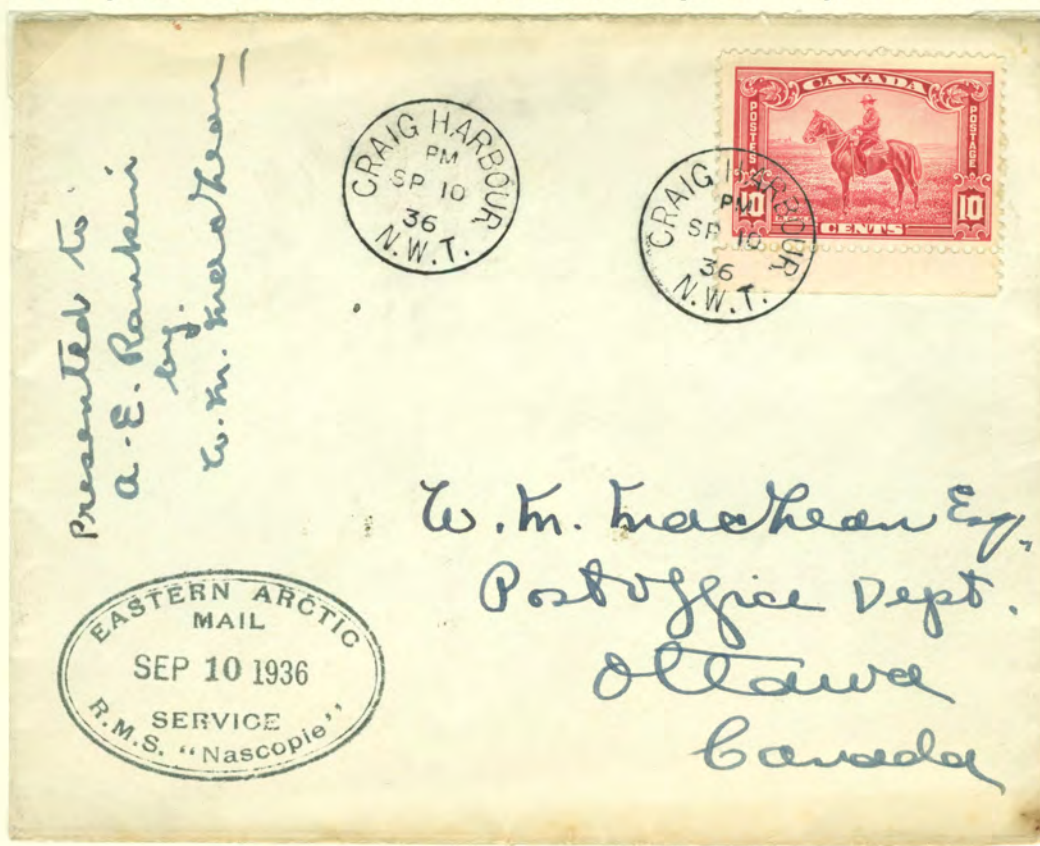 Presented to
A. E. Rankin
by.
W. M. MacLean
CRAIG HARBOUR
PM
SP 10
36
N.W.T.
CANADA
POSTES
POSTAGE
10 CENTS 10
CRAIG HARBOUR
PM
SP 10
36
N.W.T.
W. M. MacLean Esq,
Post Office Dept.
Ottawa
Canada
EASTERN ARCTIC
MAIL
SEP 10 1936
SERVICE
R.M.S. "Nascopie"